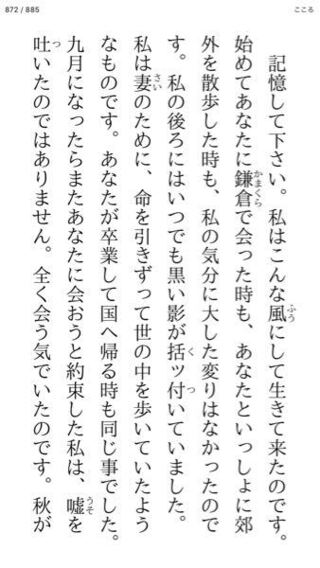 872 / 885
こころ
記憶して下さい。私はこんな風にして生きて来たのです。
始めてあなたに鎌倉で会った時も、あなたといっしょに郊
外を散歩した時も、私の気分に大した変りはなかったので
す。私の後ろにはいつでも黒い影が括ッ付いていました。
私は妻のために、命を引きずって世の中を歩いていたよう
なものです。あなたが卒業して国へ帰る時も同じ事でした。
九月になったらまたあなたに会おうと約束した私は、嘘を
吐いたのではありません。全く会う気でいたのです。秋が